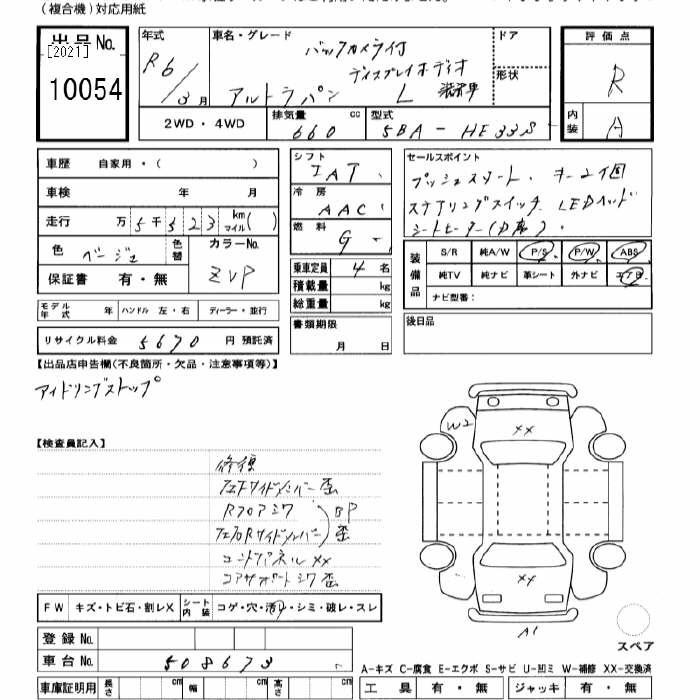 (複合機)対応用紙
出品No.
[2021]
10054
年式
R6/3月
車名・グレード
バックカメラ付
ディスプレイオーディオ
アルトラパン L
ドア
形状
評価点
R
内装
A
2WD・4WD
排気量 660 cc
型式 5BA-HE33S
車歴 自家用・( )
車検 年 月
走行 万5千523km マイル( )
色 ベージュ
色替
カラーNo. ZVP
保証書 有・無
モデル年式 年 ハンドル 左・右 ディーラー・並行
リサイクル料金 5670円 預託済
シフト IAT
冷房 AAC
燃料 G
乗車定員 4名
積載量 kg
総重量 kg
書類期限
月 日
セールスポイント
プッシュスタート、キー2個
ステアリングスイッチ、LEDヘッド
シートヒーター(
装備品
S/R 純A/W P/S P/W ABS
純TV 純ナビ 革シート 外ナビ エアB
ナビ型番:
後日品
【出品店申告欄(不良箇所・欠品・注意事項等)】
アイドリングストップ
【検査員記入】
修復
歪
Rフロアシワ
BP
歪
XX
コアサポートシワ歪
W2
XX
XX
A1
スペア
FW キズ・トビ石・割レX シート内装 コゲ・穴・汚レ・シミ・破レ・スレ
登録No.
車台No. 508673
車庫証明用 長さ cm 幅 cm 高さ cm
A-キズ C-腐食 E-エクボ S-サビ U-凹ミ W-補修 XX-交換済
工具 有・無 ジャッキ 有・無